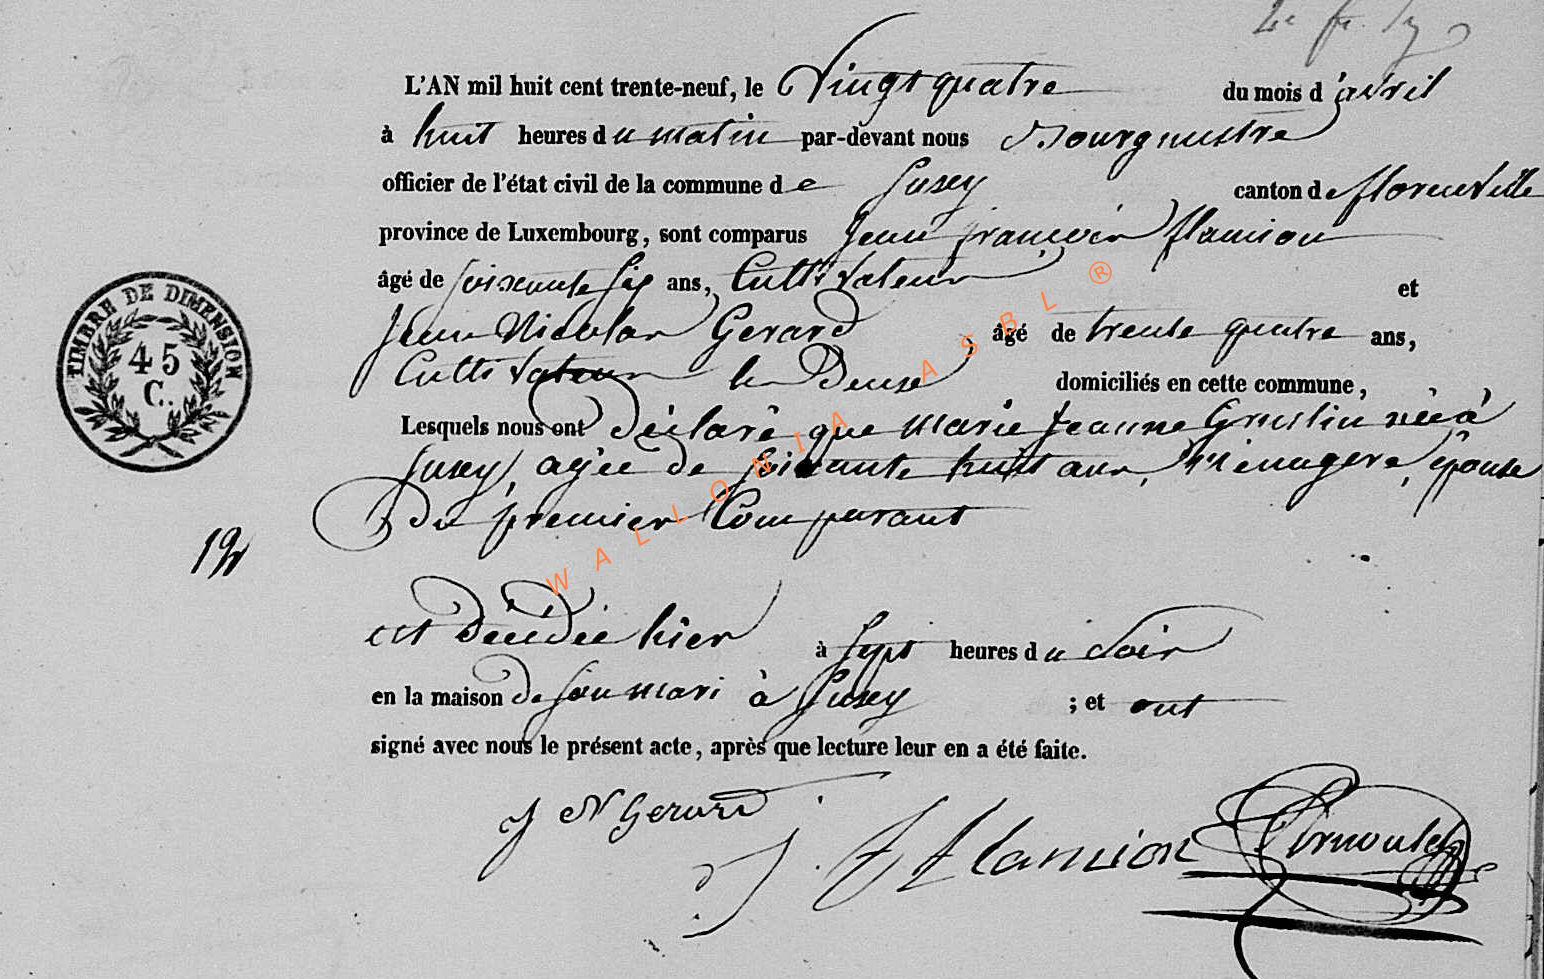 L'AN mil huit cent trente-neuf, le Vingt quatre du mois d'avril
à huit heures du matin par-devant nous Bourgmestre
officier de l'état civil de la commune de Suxy canton de florenville
province de Luxembourg, sont comparus Jean françois flamion
âgé de soixante six ans, Cultivateur et
Jean Nicolas Gerard, âgé de trente quatre ans,
Cultivateur les Deux domiciliés en cette commune,
Lesquels nous ont Déclaré que marie Jeanne née à
Suxy, agée de soixante huit ans, ménagere, épouse
Du premier Comparant
est Décédée hier à sept heures du soir
en la maison de son mari à Suxy ; et ont
signé avec nous le présent acte, après que lecture leur en a été faite.
J N Gerard
J. f flamion
TIMBRE DE DIMENSION
45
C.
WALLONIA ASBL ®